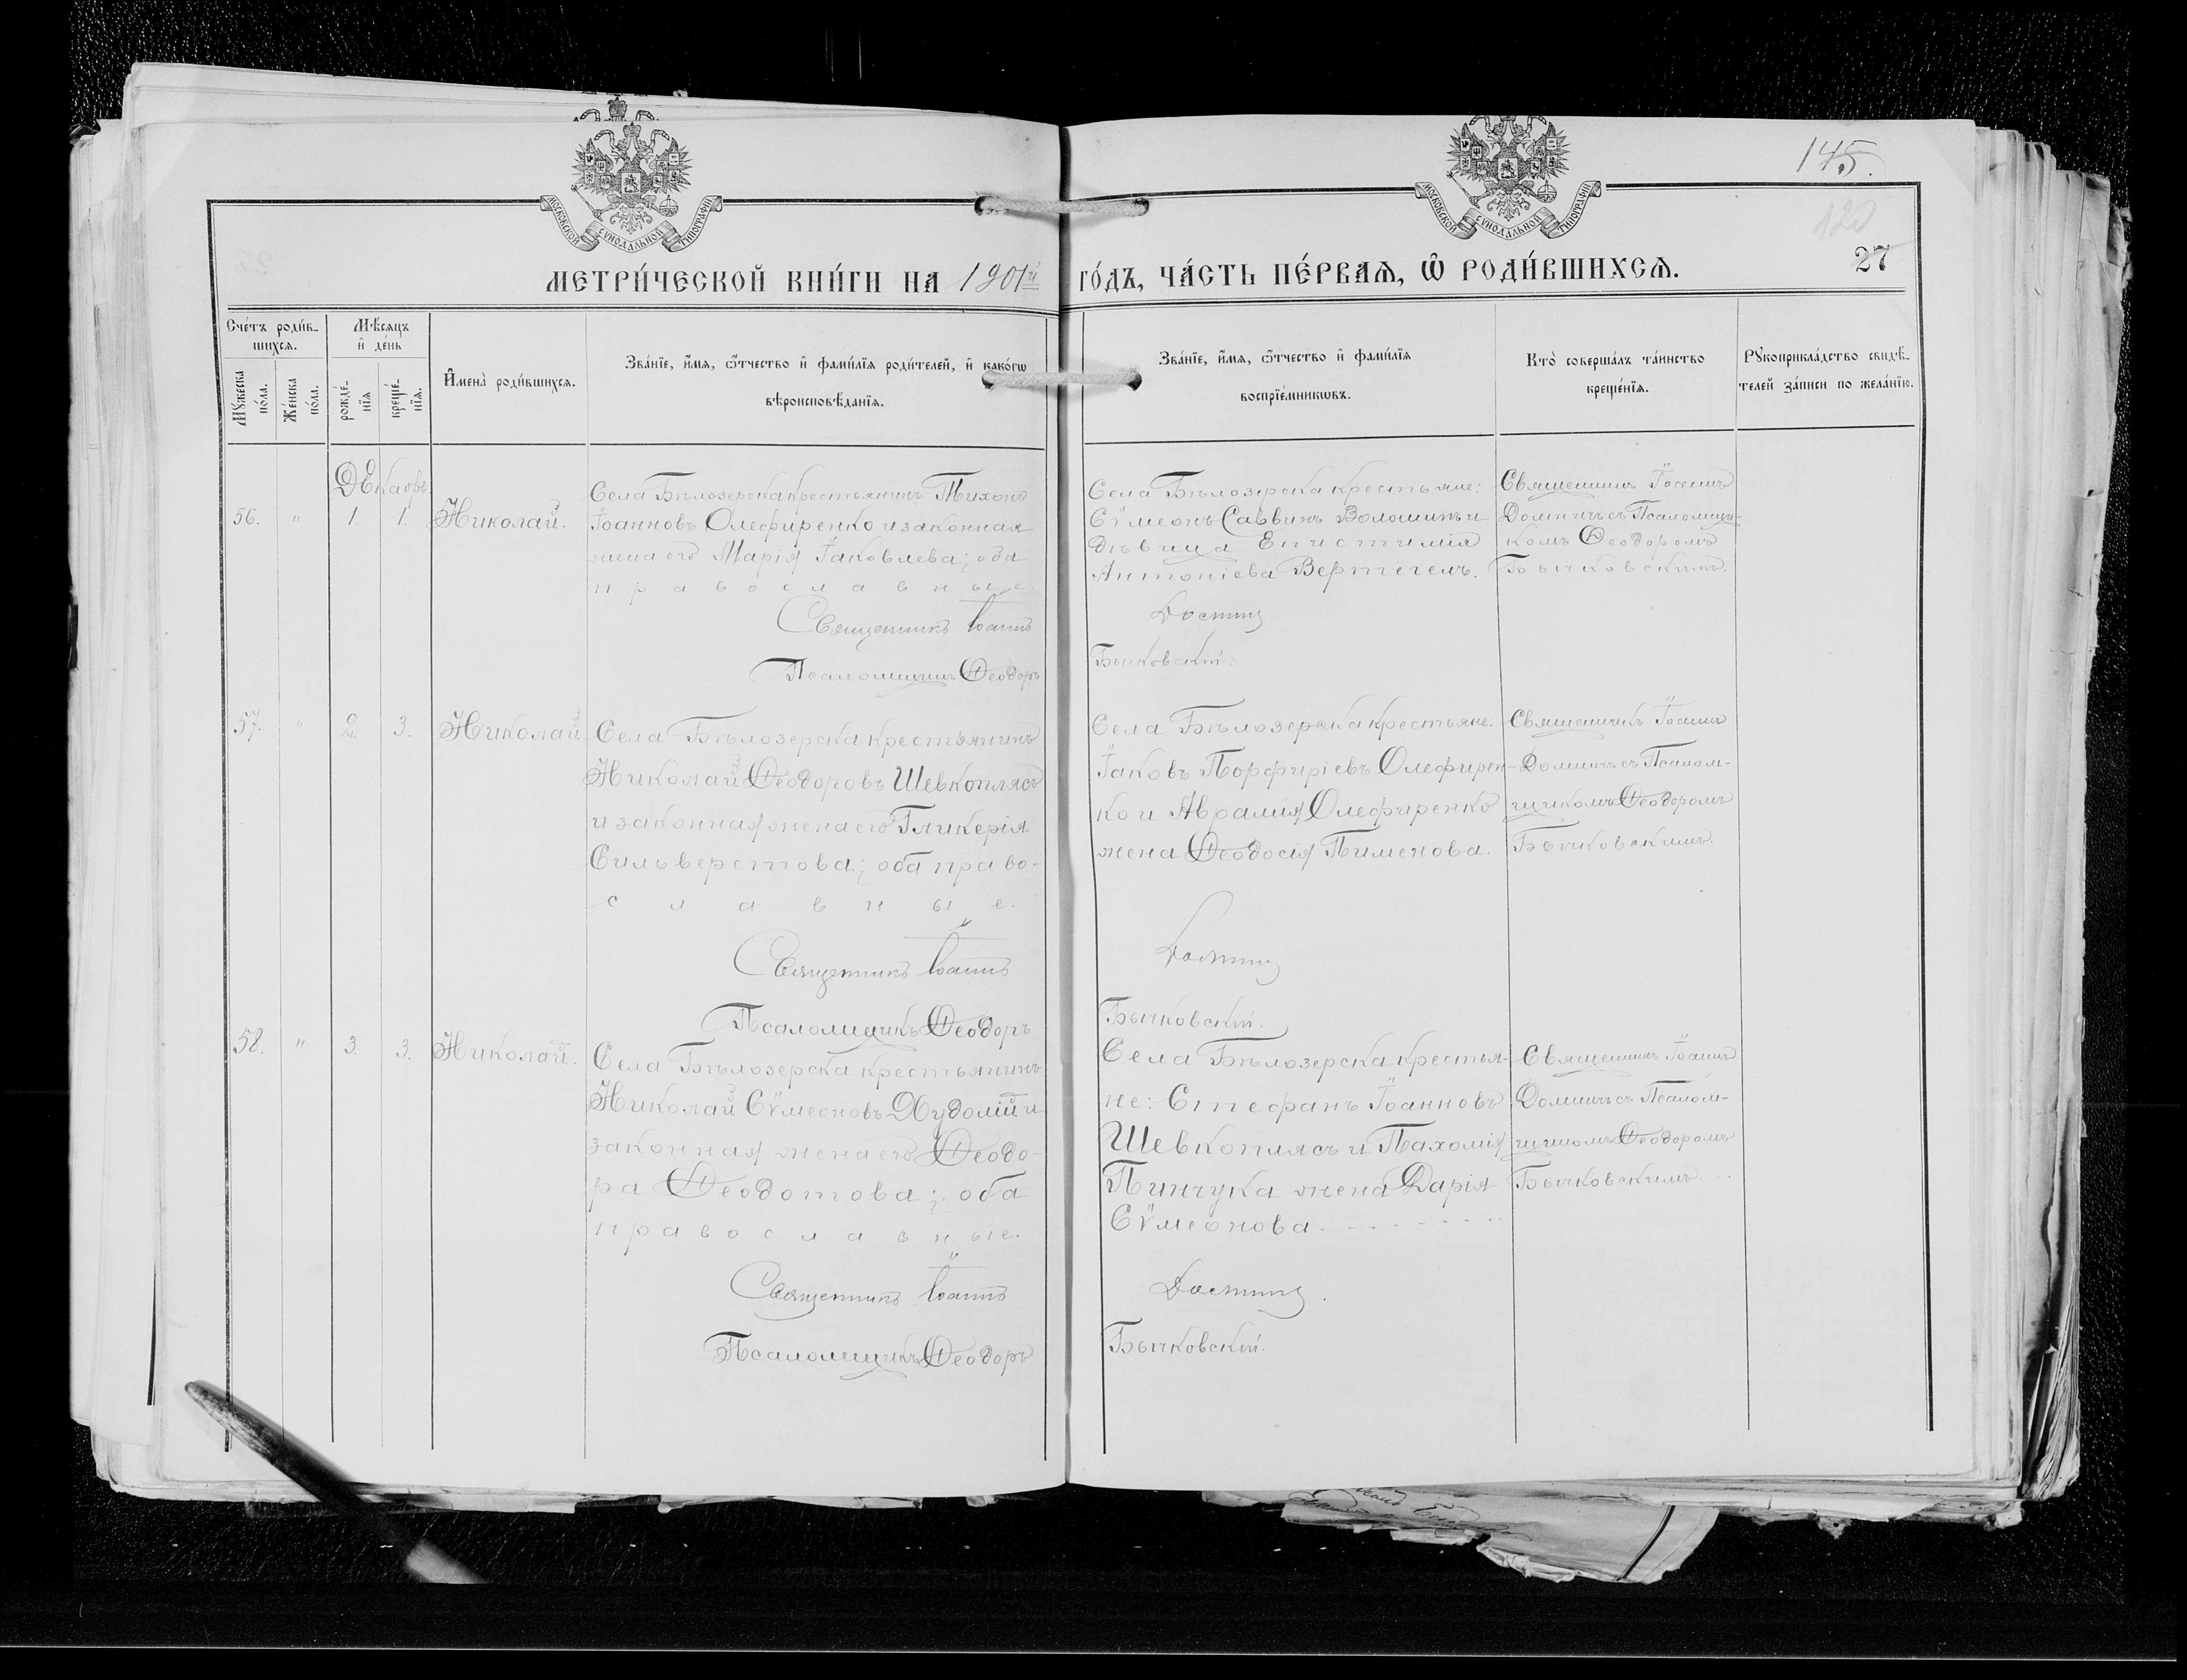 МОСКОВСКОЙ СѴНОДАЛЬНОЙ ТИПОГРАФІИ
МОСКОВСКОЙ СѴНОДАЛЬНОЙ ТИПОГРАФІИ
145.
120
27
МЕТРИ́ЧЕСКОЙ КНИ́ГИ НА 1901й ГО́ДЪ, ЧА́СТЬ ПЕ́РВАѦ, Ѡ РОДИ́ВШИХСѦ.
Сче́тъ роди́в-
шихсѧ.
Мꙋжеска по́ла.
Же́нска по́ла.
Мѣ́сяцъ
и де́нь
рожде́-
нїѧ
креще́-
нїѧ.
И҆мена̀ роди́вшихсѧ.
Зва́нїе, и҆́мѧ, ѻ҆́тчество и҆ фами́лїѧ роди́телей, и҆ како́гѡ
вѣроисповѣ́данїѧ.
Зва́нїе, и҆́мѧ, ѻ҆́тчество и҆ фами́лїѧ
воспрїе́мникѡвъ.
Кто̀ соверша́лъ та́инство
креще́нїѧ.
Рꙋкоприкла́дство свидѣ́-
телей за́писи по жела́нїю.
Декабрь
56. " 1. 1. Николай.
Села Бѣлозерска крестьянинъ Тихонъ
Іоанновъ Олефиренко и законная
жена его Марія Іаковлева; оба
православные.
Священникъ Іоаннъ
Псаломщикъ Ѳеодоръ
Села Бѣлозерска крестьяне:
Сѵмеонъ Саввинъ Волошинъ и
дѣвица Епистимія
Антоніева Вертегелъ.
Бычковскій.
Священникъ Іоаннъ
съ Псаломщи-
комъ Ѳеодоромъ
Бычковскимъ.
57. " 2. 3. Николай
Села Бѣлозерска крестьянинъ
Николай Ѳеодоровъ Шевкоплясъ
и законная жена его Гликерія
Сильверстова; оба право-
славные.
Священникъ Іоаннъ
Псаломщикъ Ѳеодоръ
Села Бѣлозерска крестьяне:
Іаковъ Порфиріевъ Олефирен-
ко и Аврамія Олефиренко
жена Ѳеодосія Пименова.
Бычковскій.
Священникъ Іоаннъ
съ Псалом-
щикомъ Ѳеодоромъ
Бычковскимъ.
58. " 3. 3. Николай.
Села Бѣлозерска крестьянинъ
Николай Сѵмеоновъ Худолій и
законная жена его Ѳеодо-
ра Ѳеодотова; оба
православные.
Священникъ Іоаннъ
Псаломщикъ Ѳеодоръ
Села Бѣлозерска крестья-
не: Стефанъ Іоанновъ
Шевкоплясъ и Пахомія
Пинчука жена Дарія
Сѵмеонова.
Бычковскій.
Священникъ Іоаннъ
съ Псалом-
щикомъ Ѳеодоромъ
Бычковскимъ.